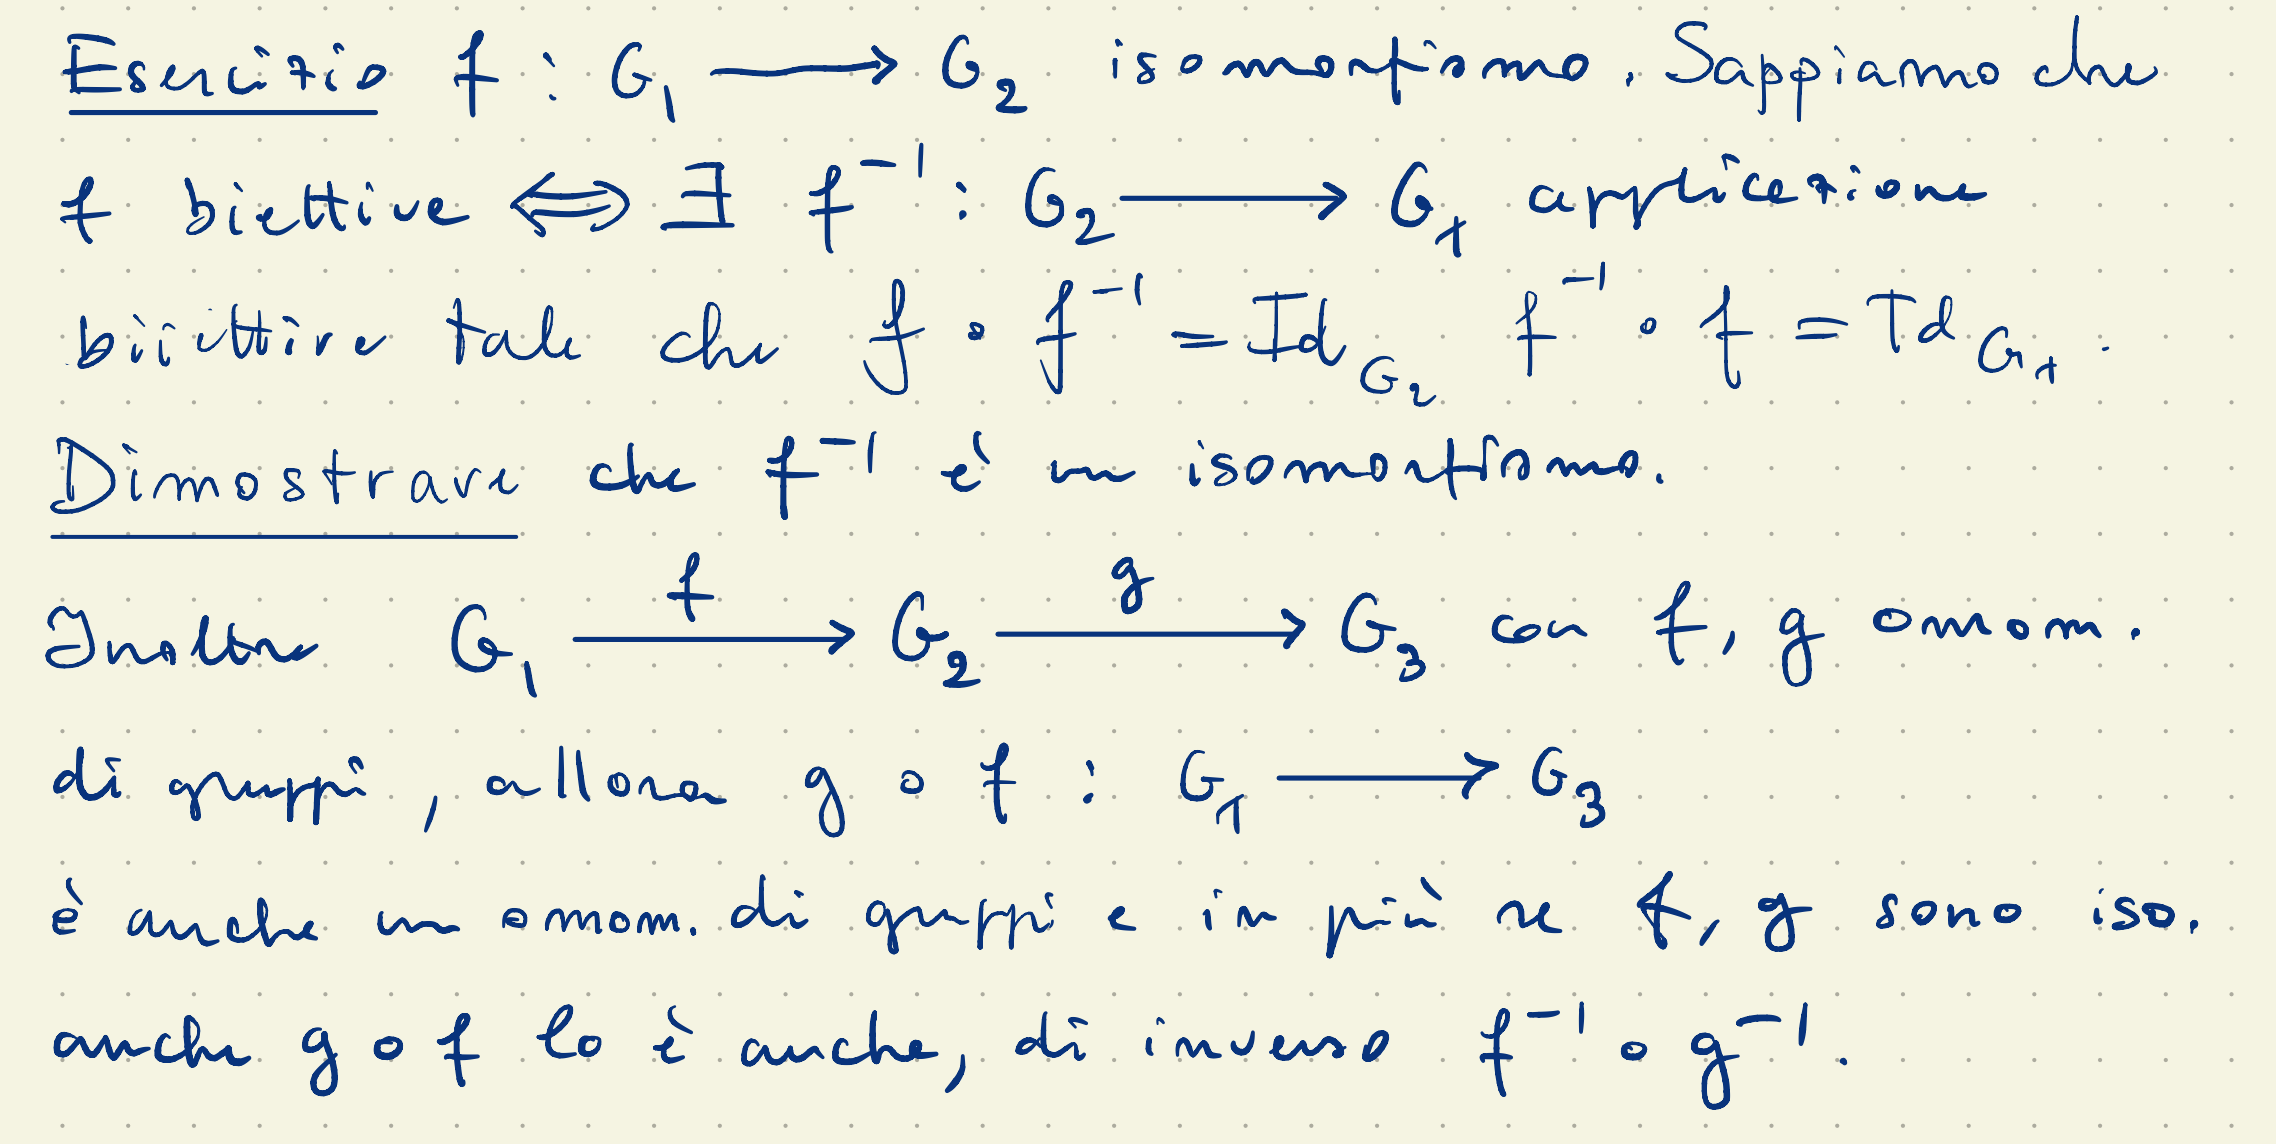 Esercizio f : G₁ ⟶ G₂ isomorfismo. Sappiamo che
f biettiva ⟺ ∃ f⁻¹ : G₂ ⟶ G₁ applicazione
biiettiva tale che f ∘ f⁻¹ = Id_G₂ f⁻¹ ∘ f = Id_G₁.
Dimostrare che f⁻¹ è un isomorfismo.
Inoltre G₁ —f→ G₂ —g→ G₃ con f, g omom.
di gruppi, allora g ∘ f : G₁ ⟶ G₃
è anche un omom. di gruppi e in più se f, g sono iso.
anche g ∘ f lo è anche, di inverso f⁻¹ ∘ g⁻¹.